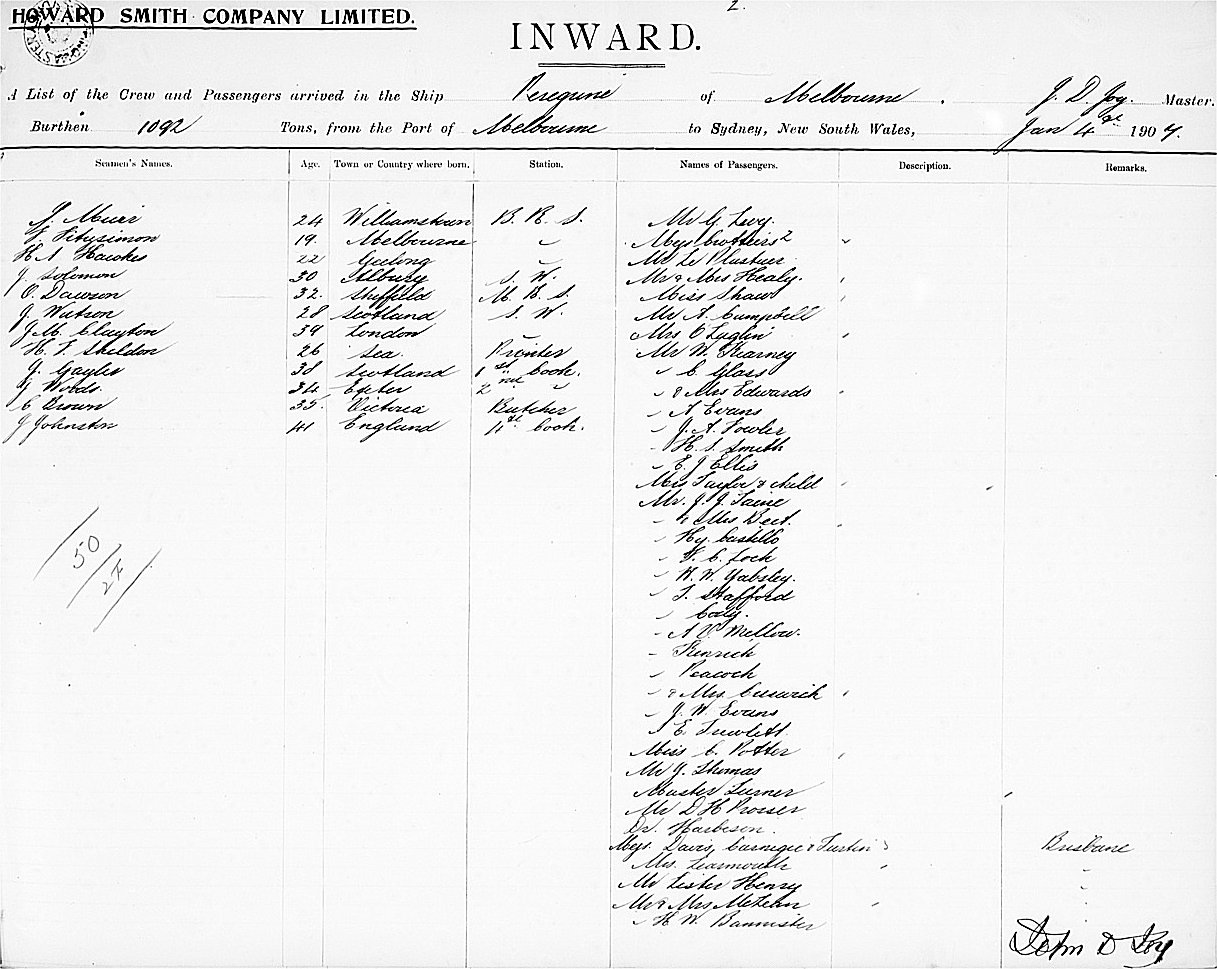 2.
HOWARD SMITH COMPANY LIMITED.
INWARD.
A List of the Crew and Passengers arrived in the Ship Peregrine of Melbourne. J. D. Joy. Master.
Burthen 1092 Tons, from the Port of Melbourne to Sydney, New South Wales, Jan 4th 1907.
Seamen's Names. Age. Town or Country where born. Station. Names of Passengers. Description. Remarks.
Muir 24 Williamstown B. R. S. Mr G. Levy.
Fitzsimon 19. Melbourne " 2 "
H. A. Hawkes 22 Geelong " Mr Le Plastrier
J. Solomon 30 Albury S. W. Mr & Mrs Healy. "
O. Dawson 32. Sheffield M. R. S. Miss Shaw "
J. Watson 28 Scotland S. W. Mr A. Campbell
J. M. Clayton 39 London " Mrs O'Lyglin "
H. F. Sheldon 26 Sea. Printer Mr W. Kearney
J. Gayler 38 Scotland 1st Cook. " C. Glass
Woods 34 Exeter 2nd " " & Mrs Edwards "
C. Brown 35. Victoria Butcher " A Evans
J Johnston 41 England 4th Cook. " J. A. Fowler
" H. S. Smith
" E. J Ellis
Mrs Taylor & child "
Mr. J. J. Taine
" & Mrs Beet. "
" Hy. Castello
" C. Lock
" W. W. Yabsley.
" T. Stafford
" Cody.
" A V. Mellow.
" Kenrick
" Peacock
" & Mrs. Beswick "
" J. W. Evans
" E. Trewlett.
Miss C. Potter "
Mr J. Thomas
Master Turner "
Mr D H Prosser
Dr. Harbeson.
Davis, Carnegie & Turtin 3 Brisbane
Mrs. Learmouth " "
Mr Lister Henry "
Mr & Mrs McLean " "
" H W. Bannister
50/24
John D Joy